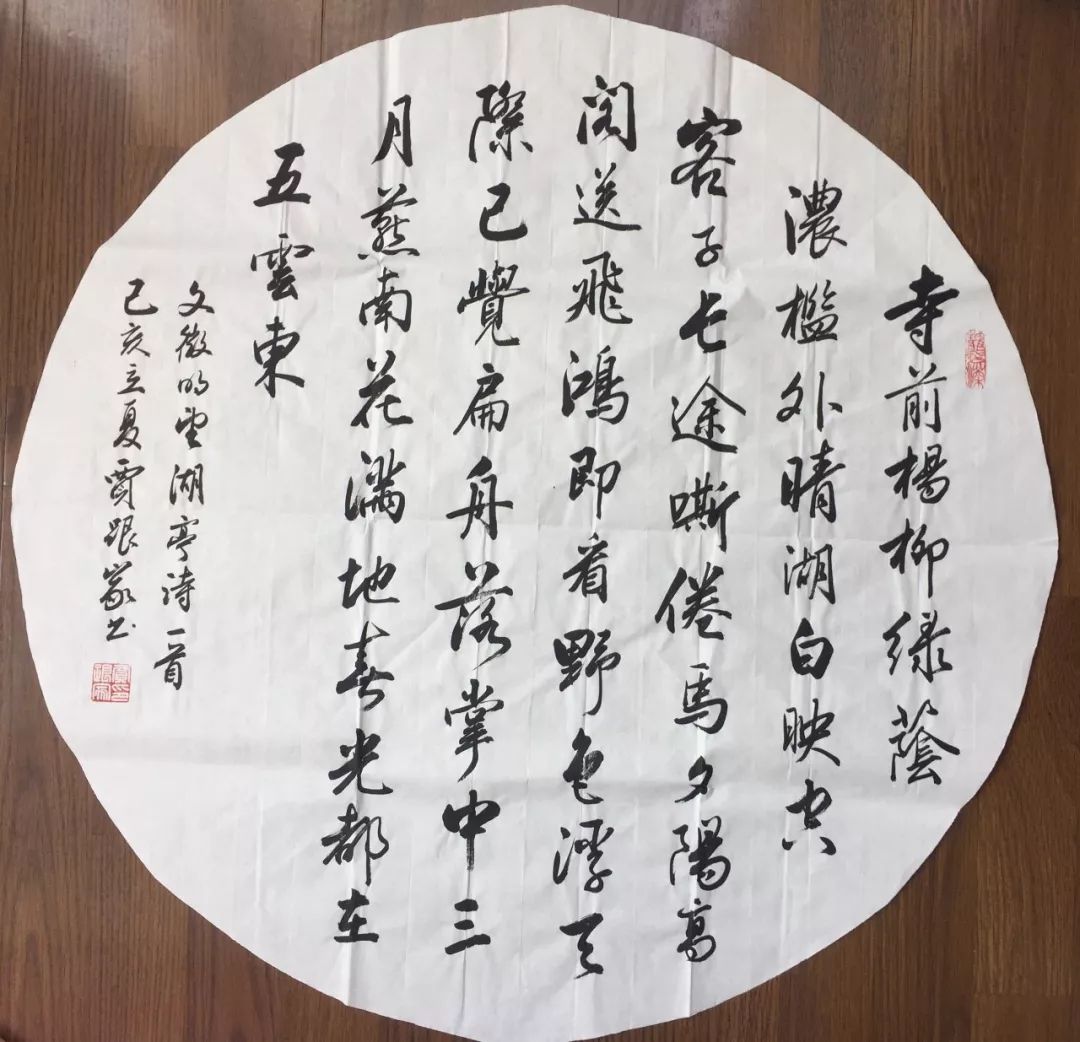 寺前楊柳綠蔭
濃檻外晴湖白映空
客子長途嘶倦馬夕陽高
閣送飛鴻即看野色浮天
際已覺扁舟落掌中三
月燕南花滿地春光都在
五雲東
文徵明望湖亭詩一首
己亥立夏賈跟家书